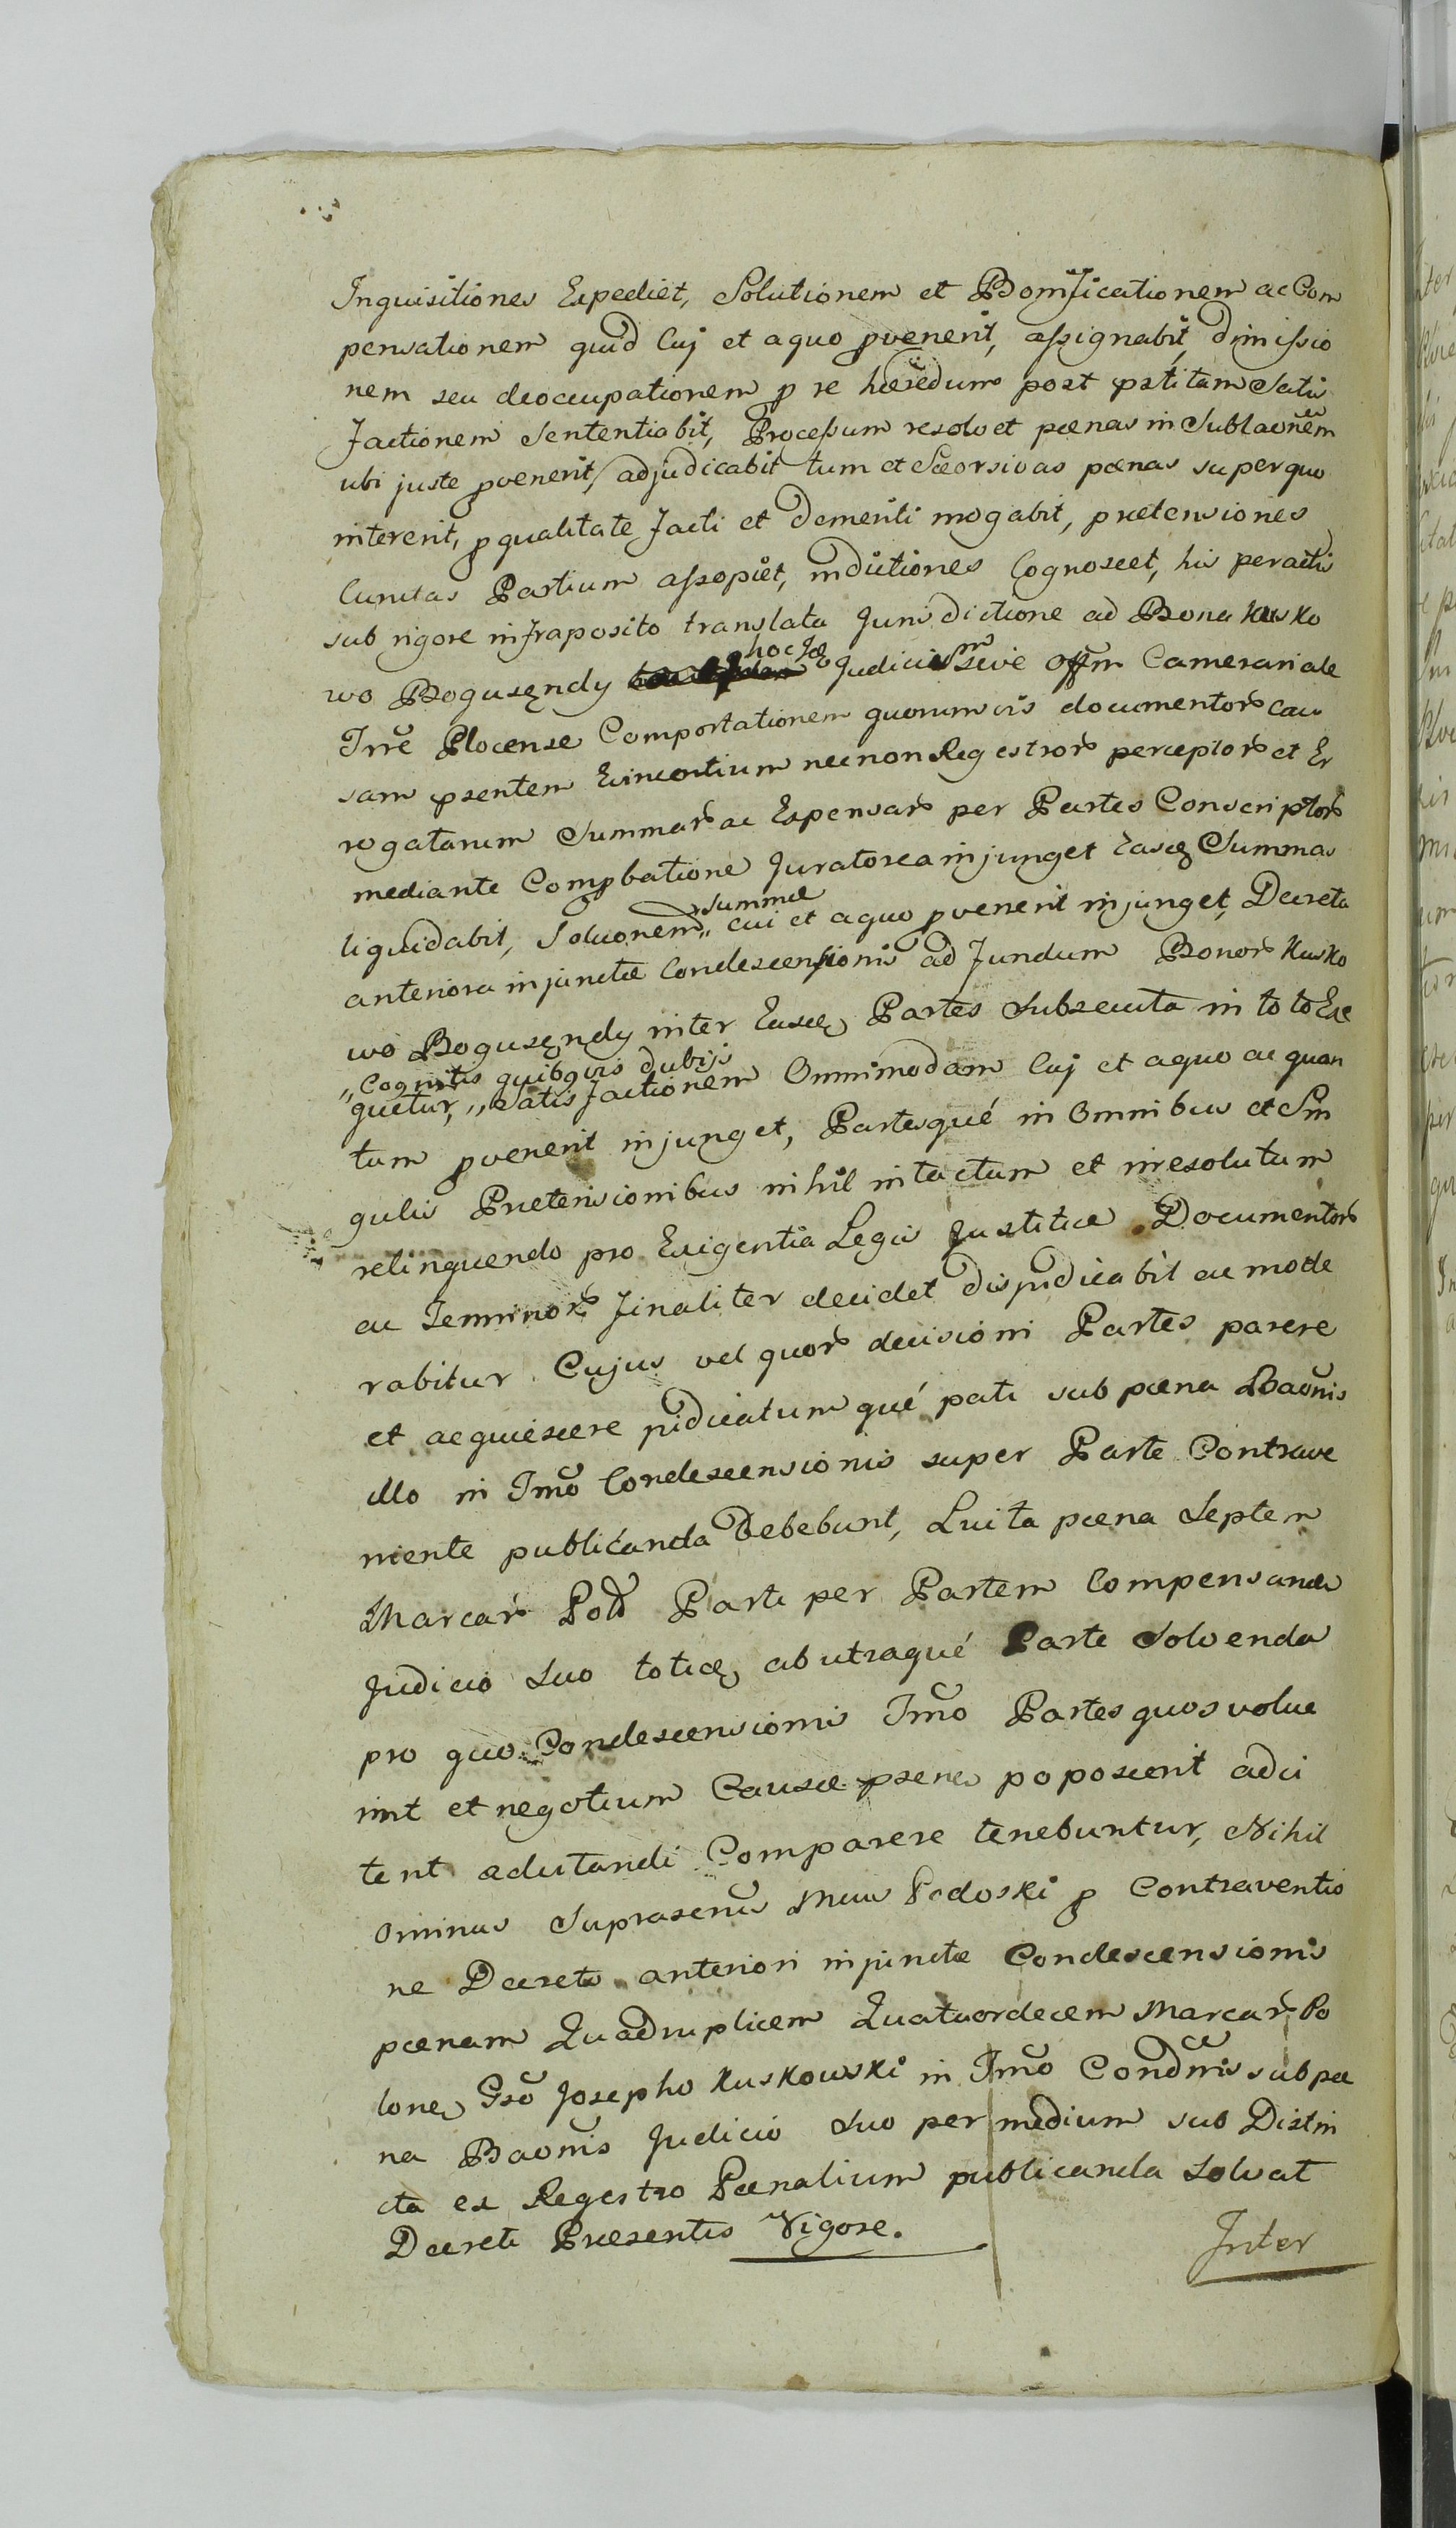 Inquisitiones Expediet, Solutionem et Bonificationem ac Com
pensationem quid Cuj et a quo pvenerit, assignabit, dimissio
nem seu deoccupationem p re hæredum post pstitam Satis
factionem Sententiabit, Processum resolvet pœnas in Sublaõnem
ubi juste pvenerit, adjudicabit tum et Seorsivas pœnas super quo
intererit, p qualitate facti et demeriti irrogabit, prætensiones
Cunctas Partium assopiet, inductiones Cognoscet, his peractis
sub rigore infraposito translata Jurisdictione ad Bona Kusko
wo Bogusędy hoc Idq Judicium sive Offm Camerariale
Trrẽ Plocense Comportationem quorumvis documentor cau
sam psentem Evincentium necnon Regestror perceptor et Er
rogatarum Summar ac Expensar per Partes Conscriptor
mediante Compbatione Juratorea injunget Easq Summas
liquidabit, Soluonem summæ cui et a quo pvenerit injunget, Decreta
anteriora injunctæ Condescensionis ad fundum Bonor Kusko
wo Bogusędy inter Easq Partes Subsecuta in toto Exe
"Cognitis quibqvis dubijs
quetur, "Satisfactionem Omnimodam Cuj et a quo ac quan
tum pvenerit injunget, Partesqué in Omnibus et Sin
gulis Prætensionibus nihil intactum et irresolutum
relinquendo pro Exigentia Legis Justitiæ Documentor
ac Terminor finaliter decidet disjudicabit ac mode
rabitur. Cujus vel quor decisioni Partes parere
et acquiescere judicatumqué pati sub pœna Baõnis
illo in Tmõ Condescensionis super Parte Contrave
niente publicanda Debebunt, Luita pœna Septem
Marcar Pold Parti per Partem Compensanda
Judicio Suo totieq ab utraqué Parte Solvenda
pro quo Condescensionis Tmõ Partes quos volue
rint et negotium Causæ psens poposcerit adci
tent adcitandi Comparere tenebuntur, Nihil
ominus Suprascrus Mcus Podoski p Contraventio
ne Decreto anteriori injunctæ Condescensionis
pœnam Quadruplicem Quatuordecem Marcar Po
lones Gsõ Josepho Kuskowski in Tmõ Condnis sub pæ
na Baonis Judicio Suo per medium sub Distin
cta ex Regestro Pœnalium publicanda Solvat
Decreti Præsentis Vigore.
Inter